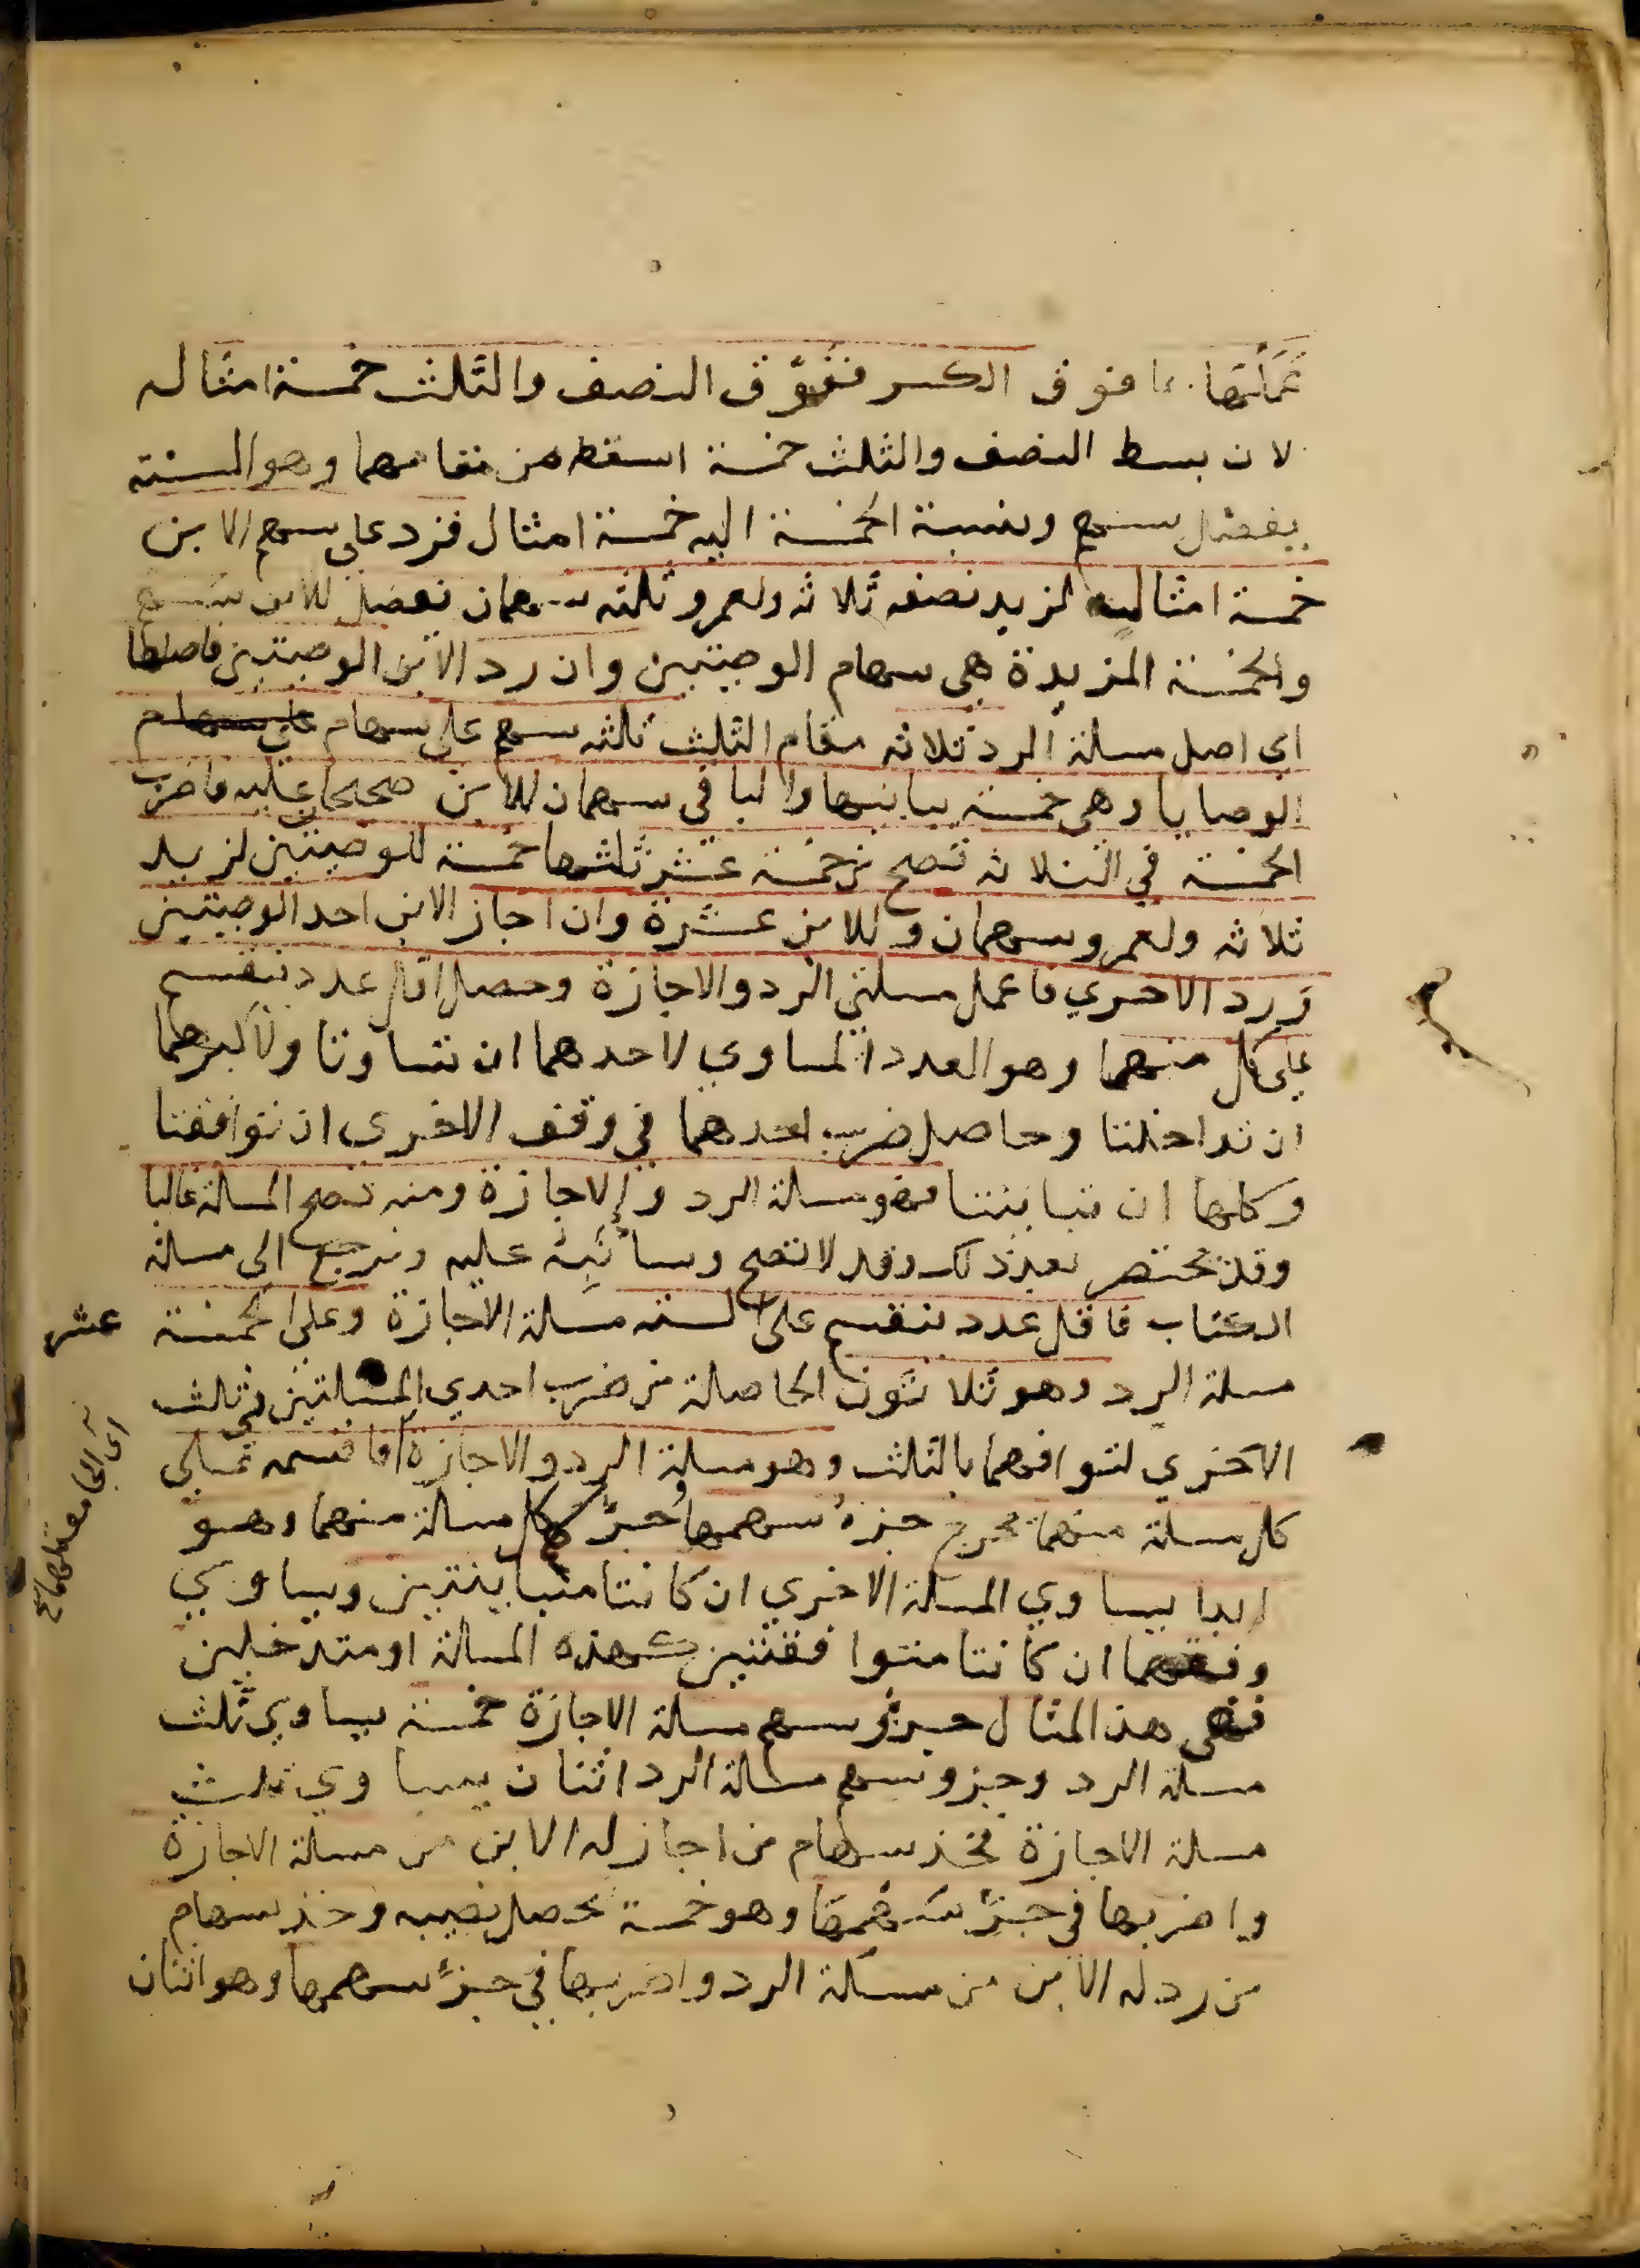 عملتها ما فوق الكسر ففوق النصف والثلث خمسة امثاله
لان بسط النصف والثلث خمسة اسقط من مقامهما وهو الستة
يفضل سهم ونسبة الخمسة اليه خمسة امثال فزد على سهم الابن
خمسة امثاله لزيد نصفه ثلاثه ولعمرو ثلثه سهمان تفضل للابن سهم
والخمسة المزيدة هي سهام الوصيتين وان رد الابن الوصيتين فاصلها
اى اصل مسلة الرد ثلاثه مقام الثلث ثلثه سهم على سهام على سهام
الوصايا وهي خمسة يباينها والباقي سهمان للابن صحيحا عليه فاضرب
الخمسة في الثلاثه تصح من خمسة عشر ثلثها خمسة للوصيتين لزيد
ثلاثه ولعمرو سهمان وللابن عشرة وان اجاز الابن احد الوصيتين
ورد الاخري فاعمل مسلتي الرد والاجازة وحصل اقل عدد ينقسم
على كل منهما وهو العدد المساوي لاحدهما ان تساوتا ولاكبرهما
ان تداخلتا وحاصل ضرب احدهما في وفق الاخرى ان توافقتا
وكلها ان تباينتا فهو مسلة الرد والاجازة ومنه تصح المسالة غالبا
وقد تختصر بعد ذلك وقد لا تصح وسانبه عليه ونرجع الى مسلة
الكتاب فاقل عدد ينقسم على الستة مسلة الاجازة وعلى الخمسة
عشر
مسلة الرد وهو ثلاثون الحاصلة من ضرب احدي المسلتين في ثلث
الاخري لتوافهما بالثلث وهو مسلة الرد والاجازة فاقسمه على
كل مسلة منهما يخرج جزء سهمها وجزء سهم كل مسالة منهما وهو
ابدا يساوي المسلة الاخري ان كانتا متباينتين ويساوي
وفقهما ان كانتا متوافقتين كهذه المسالة او متدخلين
ففي هذ المثال جزؤ سهم مسلة الاجازة خمسة يساوي ثلث
مسلة الرد وجزو سهم مسالة الرد اثنان يساوي ثلث
مسلة الاجازة فخذ سهام من اجاز له الابن من مسلة الاجازة
واضربها في جزء سهمها وهو خمسة يحصل نصيبه وخذ سهام
من رد له الابن من مسلة الرد واضربها في جزء سهمها وهو اثنان